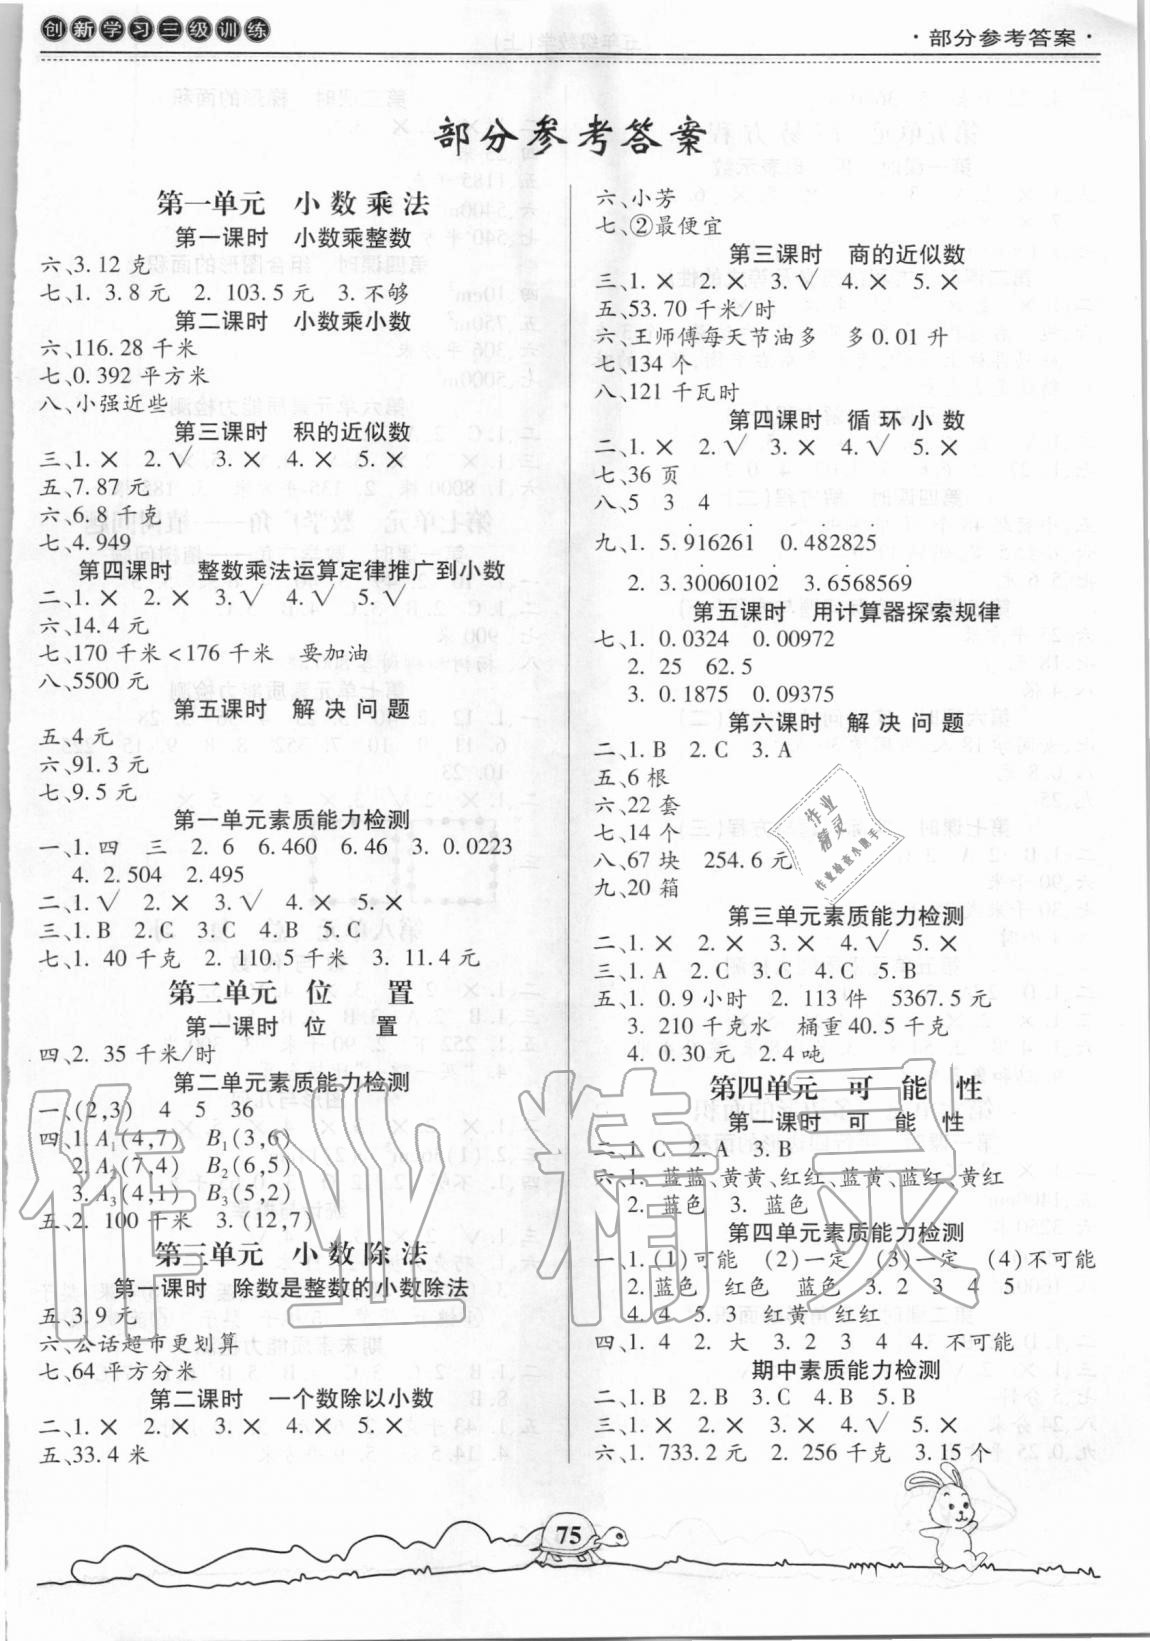 创新学习三级训练
·部分参考答案·
部分参考答案
第一单元 小数乘法
第一课时 小数乘整数
六、3.12克
七、1. 3.8元 2. 103.5元 3. 不够
第二课时 小数乘小数
六、116.28千米
七、0.392平方米
八、小强近些
第三课时 积的近似数
三、1.× 2.√ 3.× 4.× 5.×
五、7.87元
六、6.8千克
七、4.949
第四课时 整数乘法运算定律推广到小数
二、1.× 2.× 3.√ 4.√ 5.√
六、14.4元
七、170千米<176千米 要加油
八、5500元
第五课时 解决问题
五、4元
六、91.3元
七、9.5元
第一单元素质能力检测
一、1.四 三 2. 6 6.460 6.46 3. 0.0223
4. 2.504 2.495
二、1.√ 2.× 3.√ 4.× 5.×
三、1.B 2.C 3.C 4.B 5.C
七、1. 40千克 2. 110.5千米 3. 11.4元
第二单元 位置
第一课时 位置
四、2. 35千米/时
第二单元素质能力检测
一、(2,3) 4 5 36
四、1. A₁(4,7) B₁(3,6)
2. A₂(7,4) B₂(6,5)
3. A₃(4,1) B₃(5,2)
五、2. 100千米 3. (12,7)
第三单元 小数除法
第一课时 除数是整数的小数除法
五、3.9元
六、公话超市更划算
七、64平方分米
第二课时 一个数除以小数
二、1.× 2.× 3.× 4.× 5.×
五、33.4米
六、小芳
七、②最便宜
第三课时 商的近似数
三、1.× 2.× 3.√ 4.× 5.×
五、53.70千米/时
六、王师傅每天节油多 多0.01升
七、134个
八、121千瓦时
第四课时 循环小数
二、1.× 2.√ 3.× 4.√ 5.×
七、36页
八、5 3 4
九、1. 5.916261 0.482825
2. 3.30060102 3.6568569
第五课时 用计算器探索规律
七、1. 0.0324 0.00972
2. 25 62.5
3. 0.1875 0.09375
第六课时 解决问题
二、1.B 2.C 3.A
五、6根
六、22套
七、14个
八、67块 254.6元
九、20箱
第三单元素质能力检测
二、1.× 2.× 3.× 4.√ 5.×
三、1.A 2.C 3.C 4.C 5.B
五、1. 0.9小时 2. 113件 5367.5元
3. 210千克水 桶重40.5千克
4. 0.30元 2.4吨
第四单元 可能性
第一课时 可能性
二、1.C 2.A 3.B
六、1. 蓝蓝、黄黄、红红、蓝黄、蓝红、黄红
2. 蓝色 3. 蓝色
第四单元素质能力检测
一、1.(1)可能 (2)一定 (3)一定 (4)不可能
2. 蓝色 红色 蓝色 3. 2 3 4 5
4. 4 5. 3 红黄 红红
四、1. 4 2. 大 3. 2 3 4 4. 不可能
期中素质能力检测
二、1.B 2.B 3.C 4.B 5.B
三、1.× 2.× 3.× 4.√ 5.×
六、1. 733.2元 2. 256千克 3. 15个
作业精灵
作业检查小助手
作业精灵
75